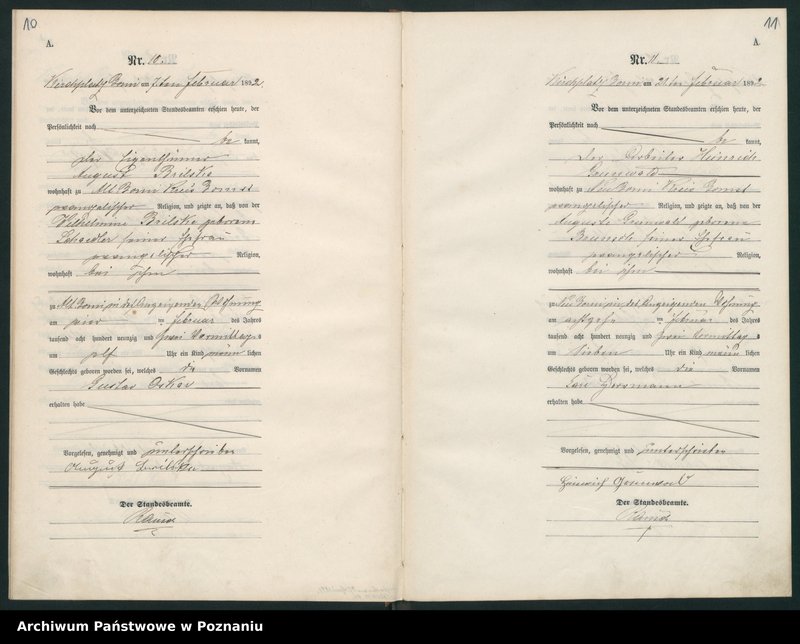 10
A.
Nr. 10.
Kirchplatz Bomst am 7ten Februar 1892
Vor dem unterzeichneten Standesbeamten erschien heute, der
Persönlichkeit nach
be kannt,
der Eigenthümer
August
wohnhaft zu Alt Kreis Bomst
evangelischer Religion, und zeigte an, daß von der
Wilhelmine geborene
seiner Ehefrau
evangelischer Religion,
wohnhaft bei ihm
zu Alt in des Anzeigenden Wohnung
am vier im Februar des Jahres
tausend acht hundert neunzig und zwei Vormittag s
um elf Uhr ein Kind männ lichen
Geschlechts geboren worden sei, welches die Vornamen
Gustav Oskar
erhalten habe
Vorgelesen, genehmigt und unterschrieben
August
Der Standesbeamte.
11
A.
Nr. 11.
Kirchplatz am 21ten Februar 1892
Vor dem unterzeichneten Standesbeamten erschien heute, der
Persönlichkeit nach
be kannt,
der Arbeiter Heinrich
Grunwald
wohnhaft zu Neu Kreis Bomst
evangelischer Religion, und zeigte an, daß von der
Auguste Grunwald geborene
seiner Ehefrau
evangelischer Religion,
wohnhaft bei ihm
zu Neu in des Anzeigenden Wohnung
am achtzehn im Februar des Jahres
tausend acht hundert neunzig und zwei Vormittag s
um sieben Uhr ein Kind männ lichen
Geschlechts geboren worden sei, welches die Vornamen
Herrmann
erhalten habe
Vorgelesen, genehmigt und unterschrieben
Heinrich Grunwald
Der Standesbeamte.
Archiwum Państwowe w Poznaniu